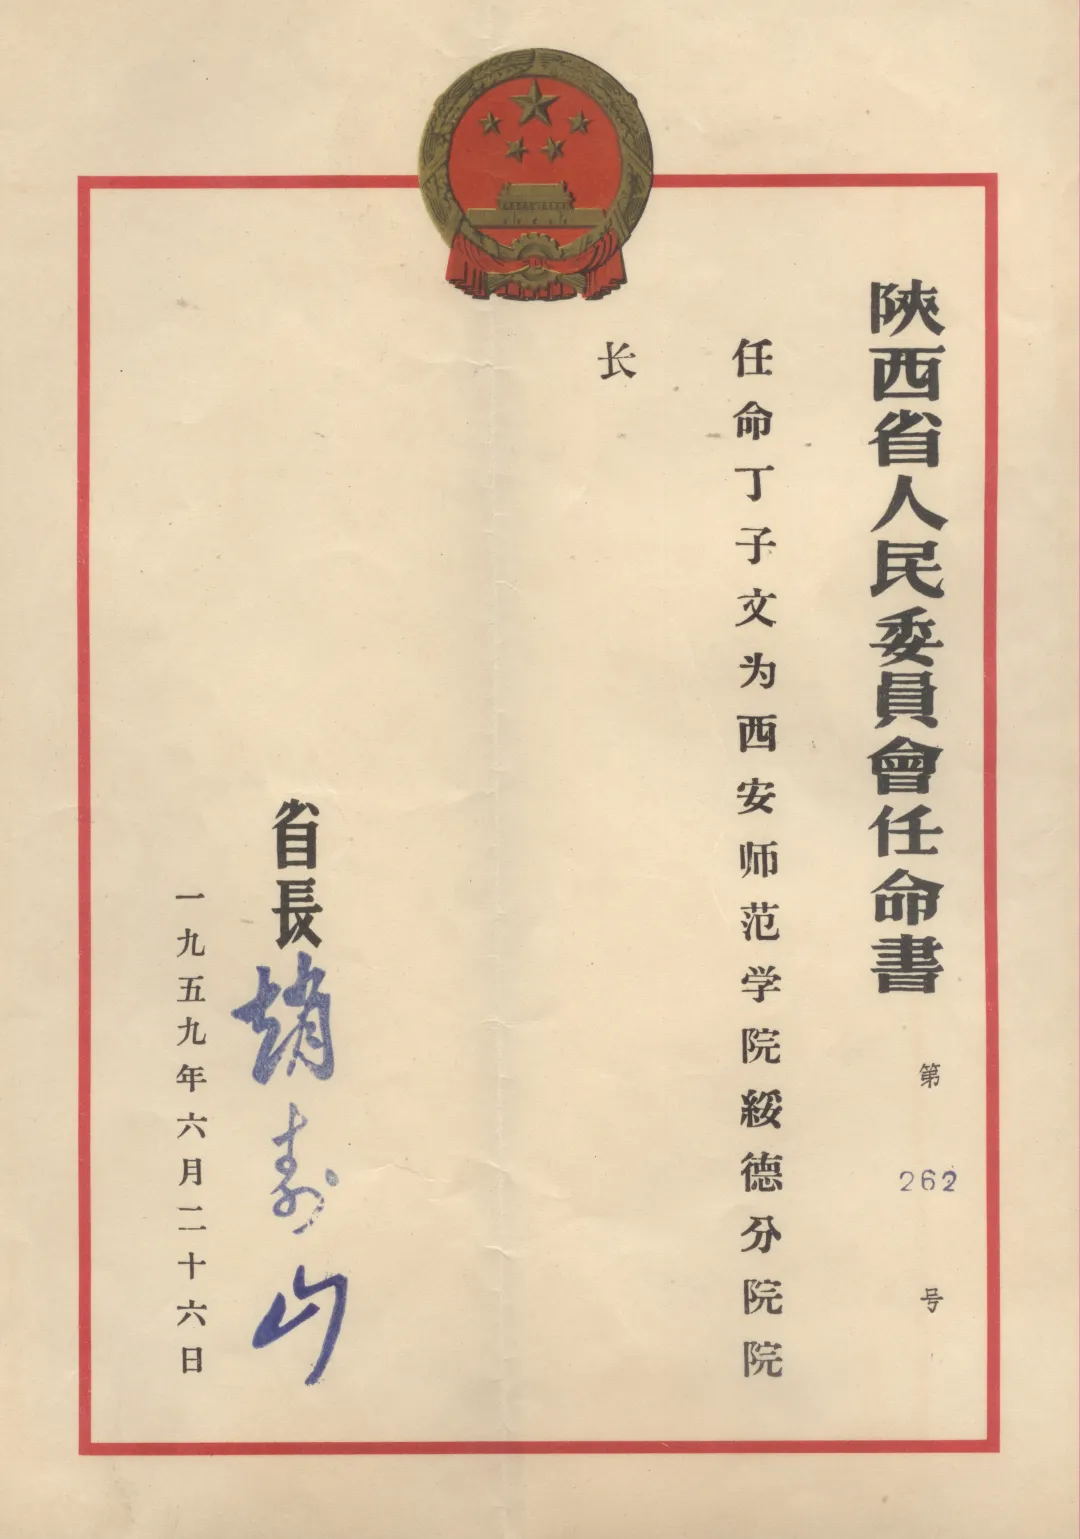 陝西省人民委員會任命書
第 262 号
任命丁子文为西安师范学院綏德分院院
长
省長 趙寿山
一九五九年六月二十六日